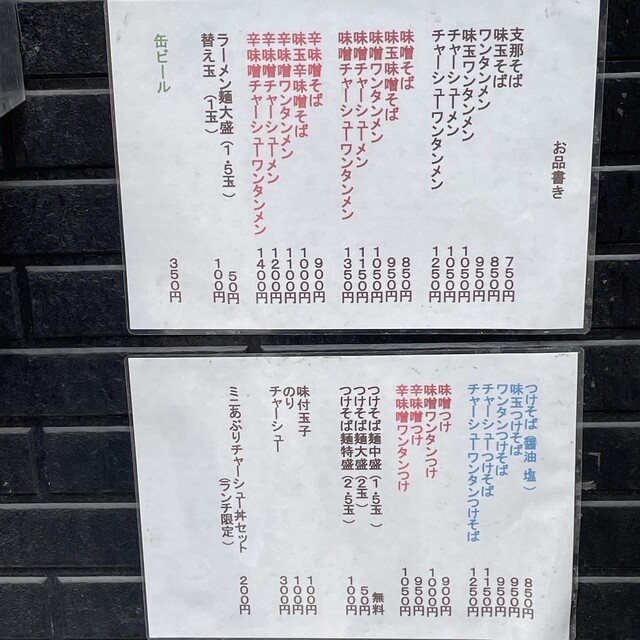 お品書き
支那そば 750円
味玉そば 850円
ワンタンメン 950円
味玉ワンタンメン 1050円
チャーシューメン 1050円
チャーシューワンタンメン 1250円
味噌そば 850円
味玉味噌そば 950円
味噌ワンタンメン 1050円
味噌チャーシューメン 1150円
味噌チャーシューワンタンメン 1350円
辛味噌そば 900円
味玉辛味噌そば 1000円
辛味噌ワンタンメン 1100円
辛味噌チャーシューメン 1200円
辛味噌チャーシューワンタンメン 1400円
ラーメン麺大盛(1.5玉) 50円
替え玉(1玉) 100円
缶ビール 350円
つけそば(醤油 塩) 850円
味玉つけそば 950円
ワンタンつけそば 950円
チャーシューつけそば 1150円
チャーシューワンタンつけそば 1250円
味噌つけ 900円
味噌ワンタンつけ 1000円
辛味噌つけ 950円
辛味噌ワンタンつけ 1050円
つけそば麺中盛(1.5玉) 無料
つけそば麺大盛(2玉) 50円
つけそば麺特盛(2.5玉) 100円
味付玉子 100円
のり 100円
チャーシュー 300円
ミニあぶりチャーシュー丼セット 200円
(ランチ限定)